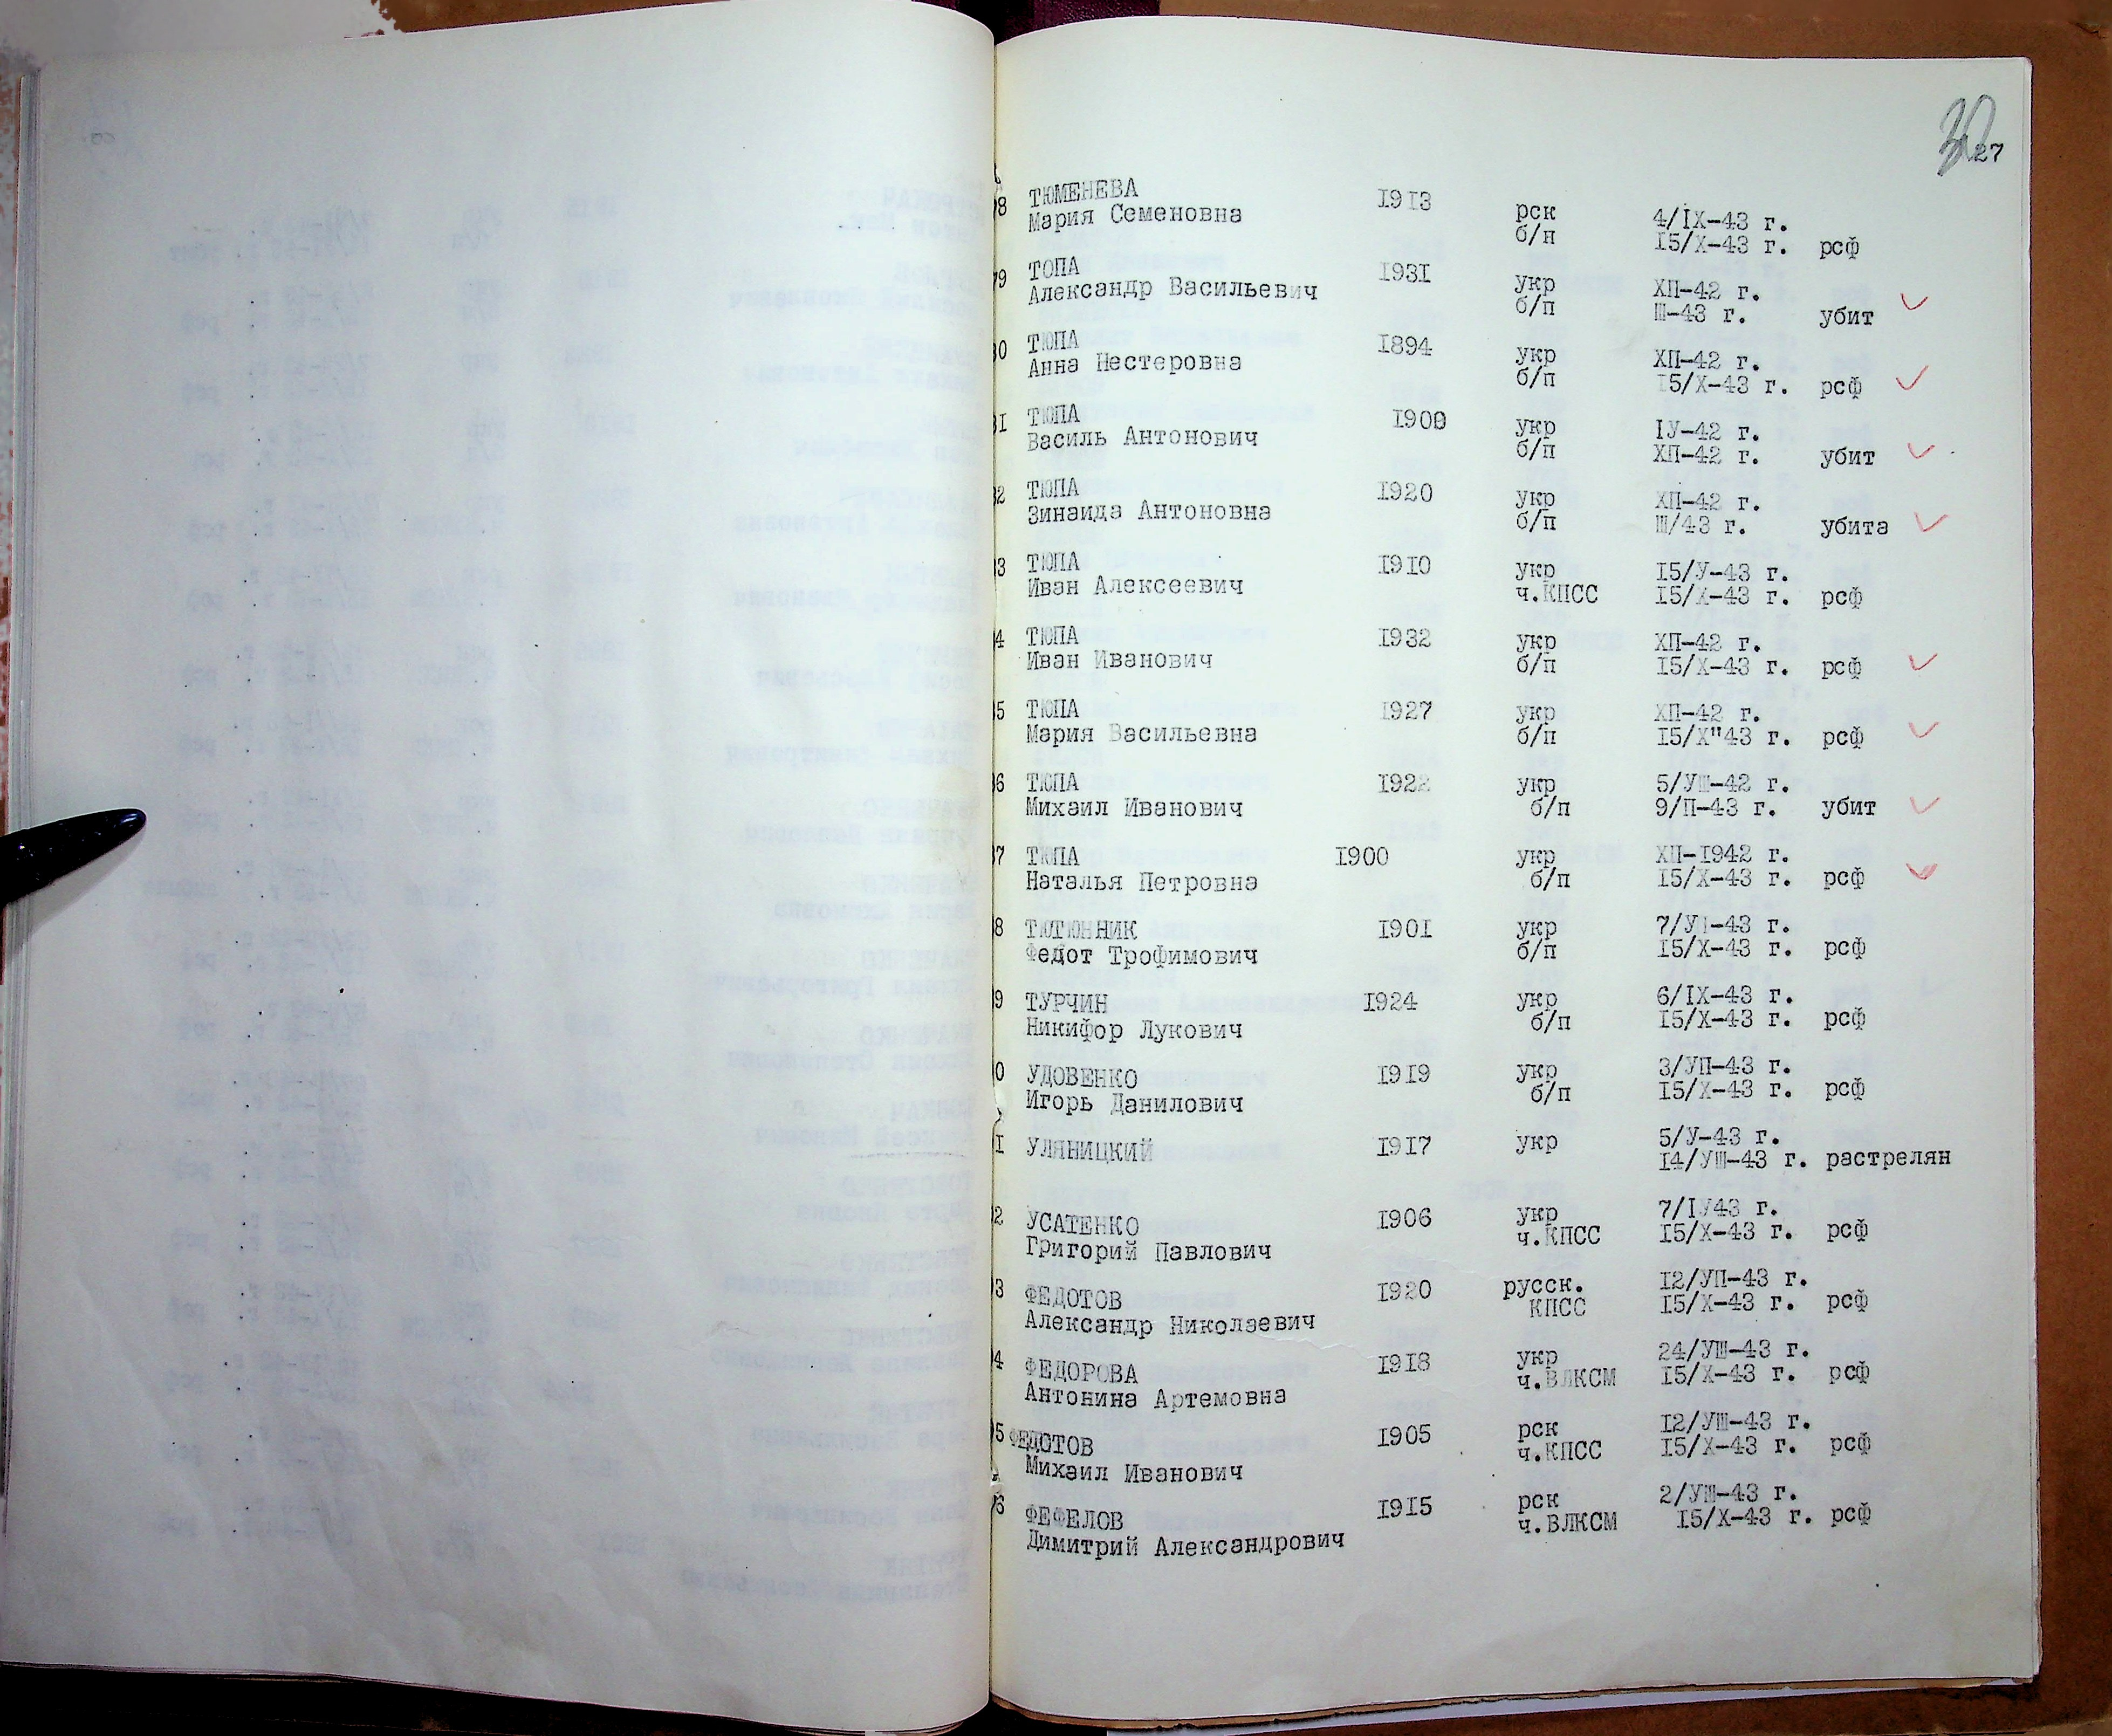 27
8 ТЮМЕНЕВА 1913 рск 4/IX-43 г.
Мария Семеновна б/п 15/X-43 г. рсф
9 ТОПА 1931 укр ХП-42 г.
Александр Васильевич б/п Ш-43 г. убит
0 ТЮПА 1894 укр ХП-42 г.
Анна Нестеровна б/п 15/X-43 г. рсф
1 ТЮПА 1900 укр IУ-42 г.
Василь Антонович б/п ХП-42 г. убит
2 ТЮПА 1920 укр ХП-42 г.
Зинаида Антоновна б/п Ш/43 г. убита
3 ТЮПА 1910 укр 15/У-43 г.
Иван Алексеевич ч.КПСС 15/X-43 г. рсф
4 ТЮПА 1932 укр ХП-42 г.
Иван Иванович б/п 15/X-43 г. рсф
5 ТЮПА 1927 укр ХП-42 г.
Мария Васильевна б/п 15/X"43 г. рсф
6 ТЮПА 1922 укр 5/УШ-42 г.
Михаил Иванович б/п 9/П-43 г. убит
7 ТЮПА 1900 укр ХП-1942 г.
Наталья Петровна б/п 15/X-43 г. рсф
8 ТЮТЮННИК 1901 укр 7/УП-43 г.
Федот Трофимович б/п 15/X-43 г. рсф
9 ТУРЧИН 1924 укр 6/IX-43 г.
Никифор Лукович б/п 15/X-43 г. рсф
0 УДОВЕНКО 1919 укр 3/УП-43 г.
Игорь Данилович б/п 15/X-43 г. рсф
1 УЛЯНИЦКИЙ 1917 укр 5/У-43 г.
14/УШ-43 г. растрелян
2 УСАТЕНКО 1906 укр 7/IУ43 г.
Григорий Павлович ч.КПСС 15/X-43 г. рсф
3 ФЕДОТОВ 1920 русск. 12/УП-43 г.
Александр Николаевич КПСС 15/X-43 г. рсф
4 ФЕДОРОВА 1918 укр 24/УШ-43 г.
Антонина Артемовна ч.ВЛКСМ 15/X-43 г. рсф
5 ФЕДОТОВ 1905 рск 12/УШ-43 г.
Михаил Иванович ч.КПСС 15/X-43 г. рсф
6 ФЕФЕЛОВ 1915 рск 2/УШ-43 г.
Димитрий Александрович ч.ВЛКСМ 15/X-43 г. рсф